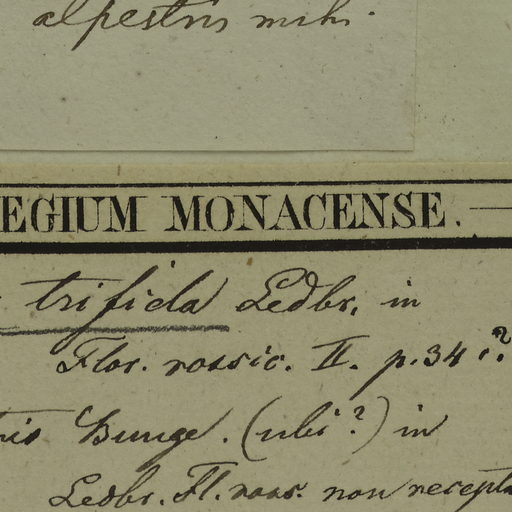 alpestris mihi.
EGIUM MONACENSE.
trifida Ledbr. in
Flor. rossic. II. p. 34 ?
Bunge. (ubi?) in
Ledbr. Fl. ross. non recepta